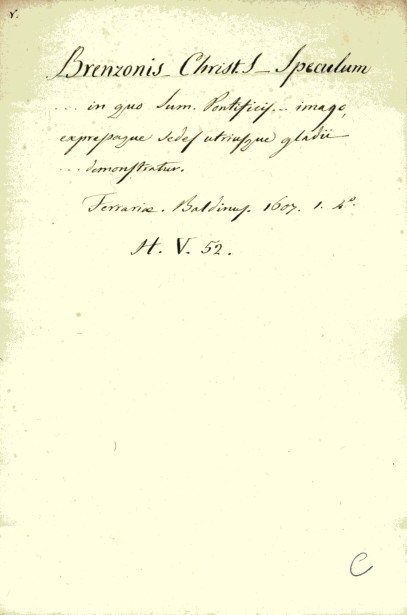 r.
Brenzonis_ Christ.s _ Speculum
... in quo Sum. Pontificis... imago,
expressaque sedes utriusque gladii
... demonstratur.
Ferrariæ. Baldinus. 1607. 1. 4°.
H. V. 52.
C